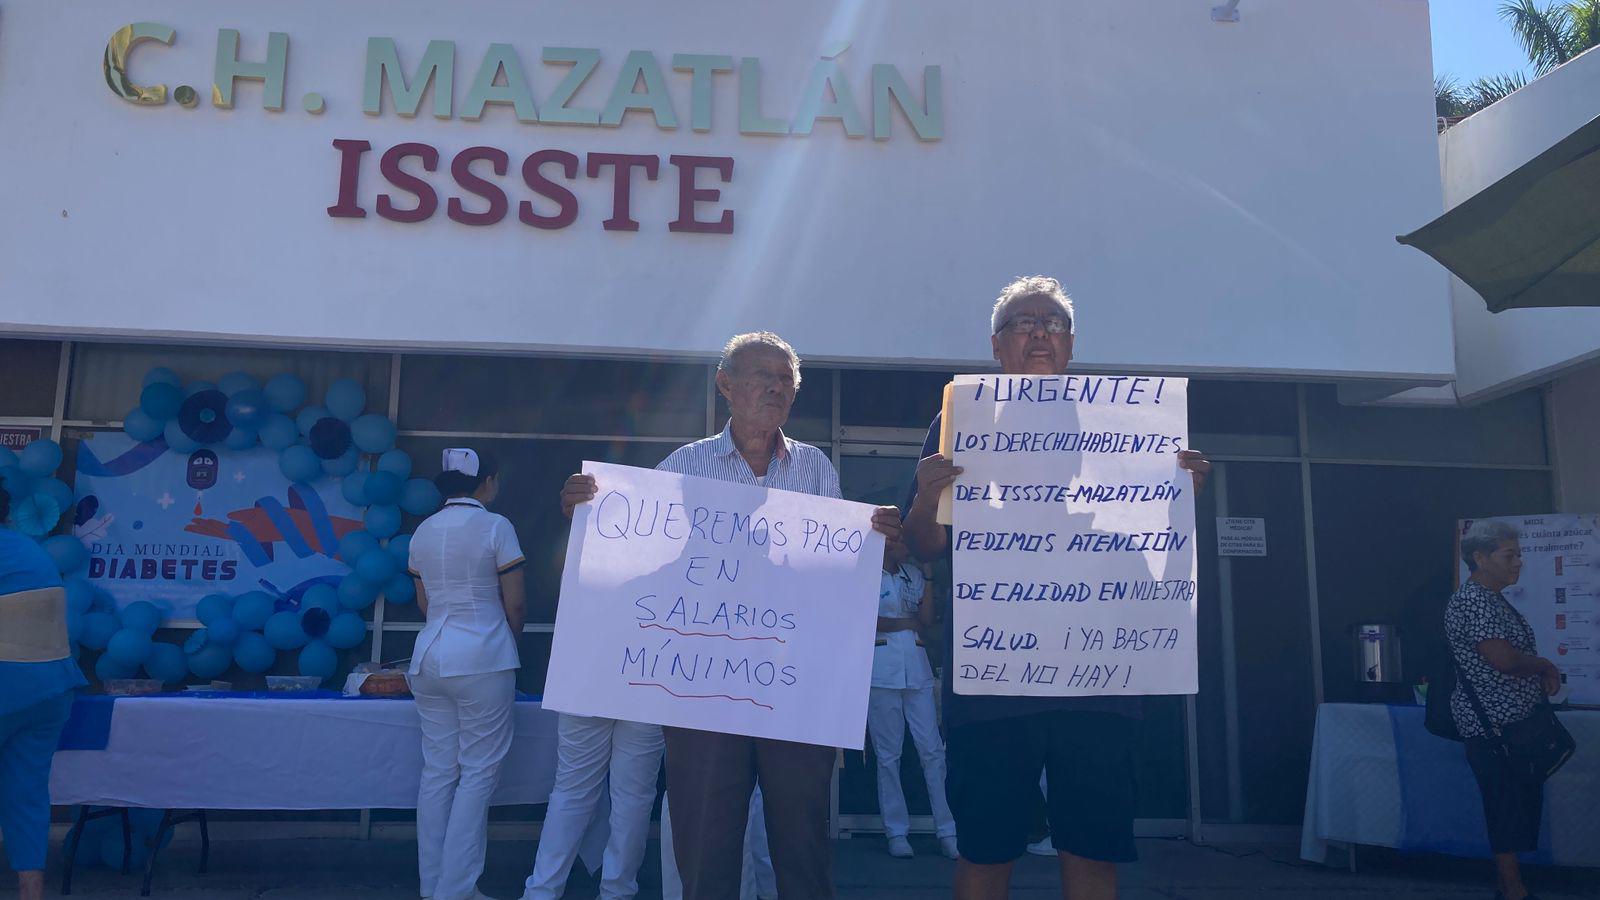 C.H. MAZATLÁN
ISSSTE
DIA MUNDIAL
DIABETES
QUEREMOS PAGO
EN
SALARIOS
MÍNIMOS
¡URGENTE!
LOS DERECHOHABIENTES
DEL ISSSTE-MAZATLÁN
PEDIMOS ATENCIÓN
DE CALIDAD EN NUESTRA
SALUD. ¡YA BASTA
DEL NO HAY!
¿TIENE CITA
MÉDICA?
PASE AL MODULO
DE CITAS PARA SU
CONFIRMACIÓN
MIDE
cuánta azúcar
realmente?